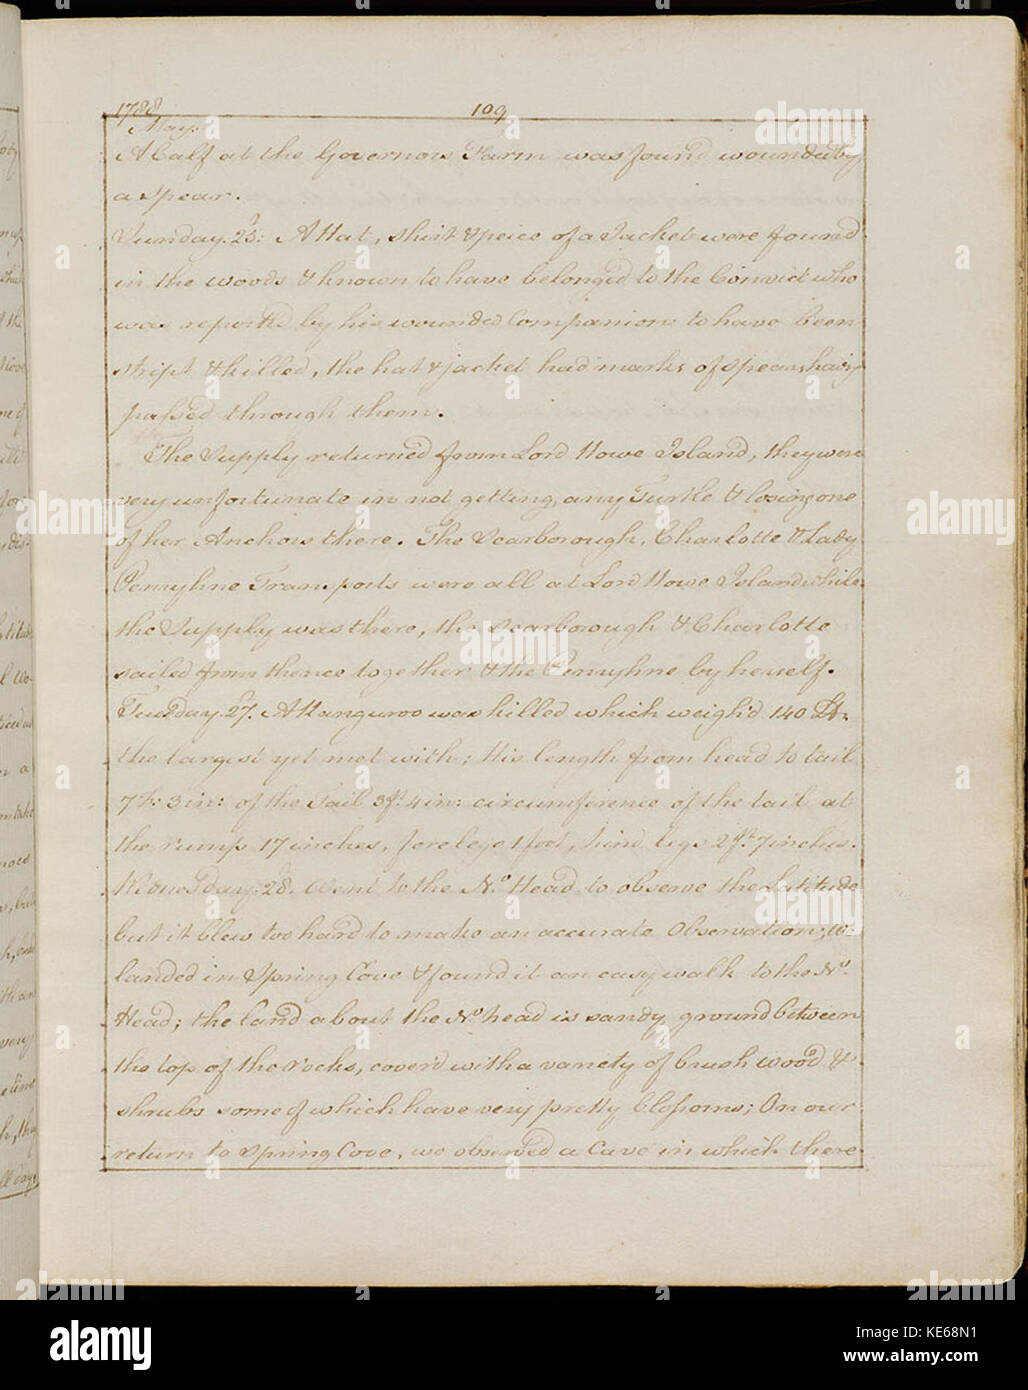 1788
109
May.
A Calf at the Governors Farm was found wounded by
a spear.
Sunday. 25: A Hat, shirt & peice of a Jacket were found
in the woods & known to have belonged to the Convict who
was reported by his wounded Companion to have been
stript & killed, the hat & jacket had marks of spears havg
passed through them.
The Supply returned from Lord Howe Island, they were
very unfortunate in not getting, any Turtle & losing one
of her Anchors there. The Scarborough, Charlotte & Lady
Penryhne Transports were all at Lord Howe Island while
the Supply was there, the Scarborough & Charlotte
sailed from thence together & the Penryhne by herself.
Tuesday. 27. A Kanguroo was killed which weigh'd 140 lb.
the largest yet met with; His length from head to tail
7 F: 3 in: of the Tail 3 ft. 4 in: circumference of the tail at
the rump 17 inches, forelegs 1 foot, hind legs 2 ft. 7 inches.
Wednesday. 28. Went to the No. Head to observe the Latitude
but it blew too hard to make an accurate Observation; We
landed in Spring Cove & found it an easy walk to the No.
Head; the land about the No. head is sandy ground between
the top of the rocks, cover'd with a variety of brush wood &
shrubs some of which have very pretty blossoms; On our
return to Spring Cove, we observed a Cave in which there
alamy
alamy
alamy
alamy
alamy
alamy
alamy
Image ID: KE68N1
www.alamy.com